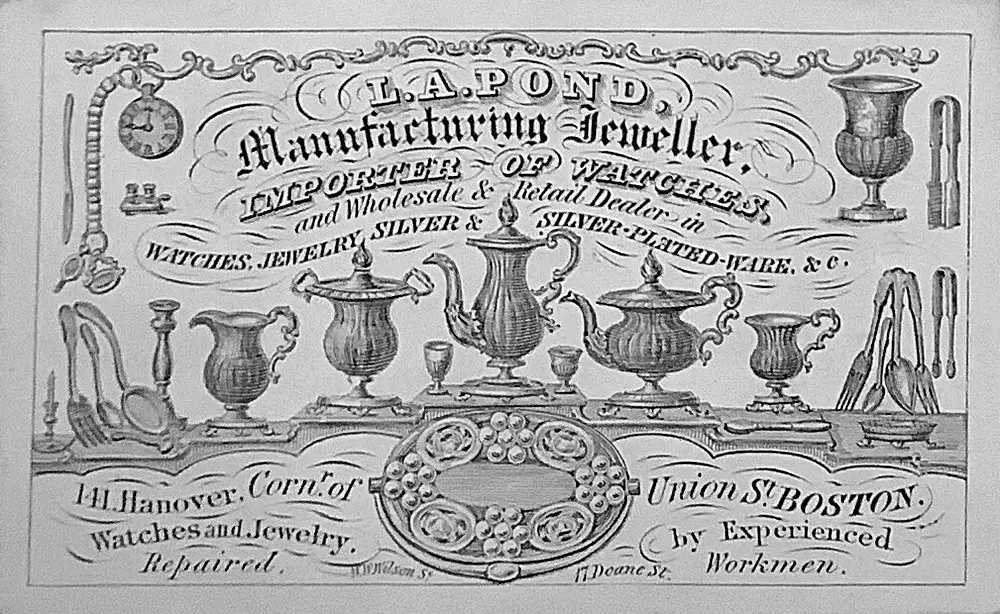 L.A.POND,
Manufacturing Jeweller,
IMPORTER OF WATCHES,
and Wholesale & Retail Dealer in
WATCHES, JEWELRY, SILVER & SILVER-PLATED-WARE, & c.
141. Hanover. Cornr. of Union St. BOSTON.
Watches and Jewelry. by Experienced
Repaired. Workmen.
W.W. Wilson Sc 17 Doane St.